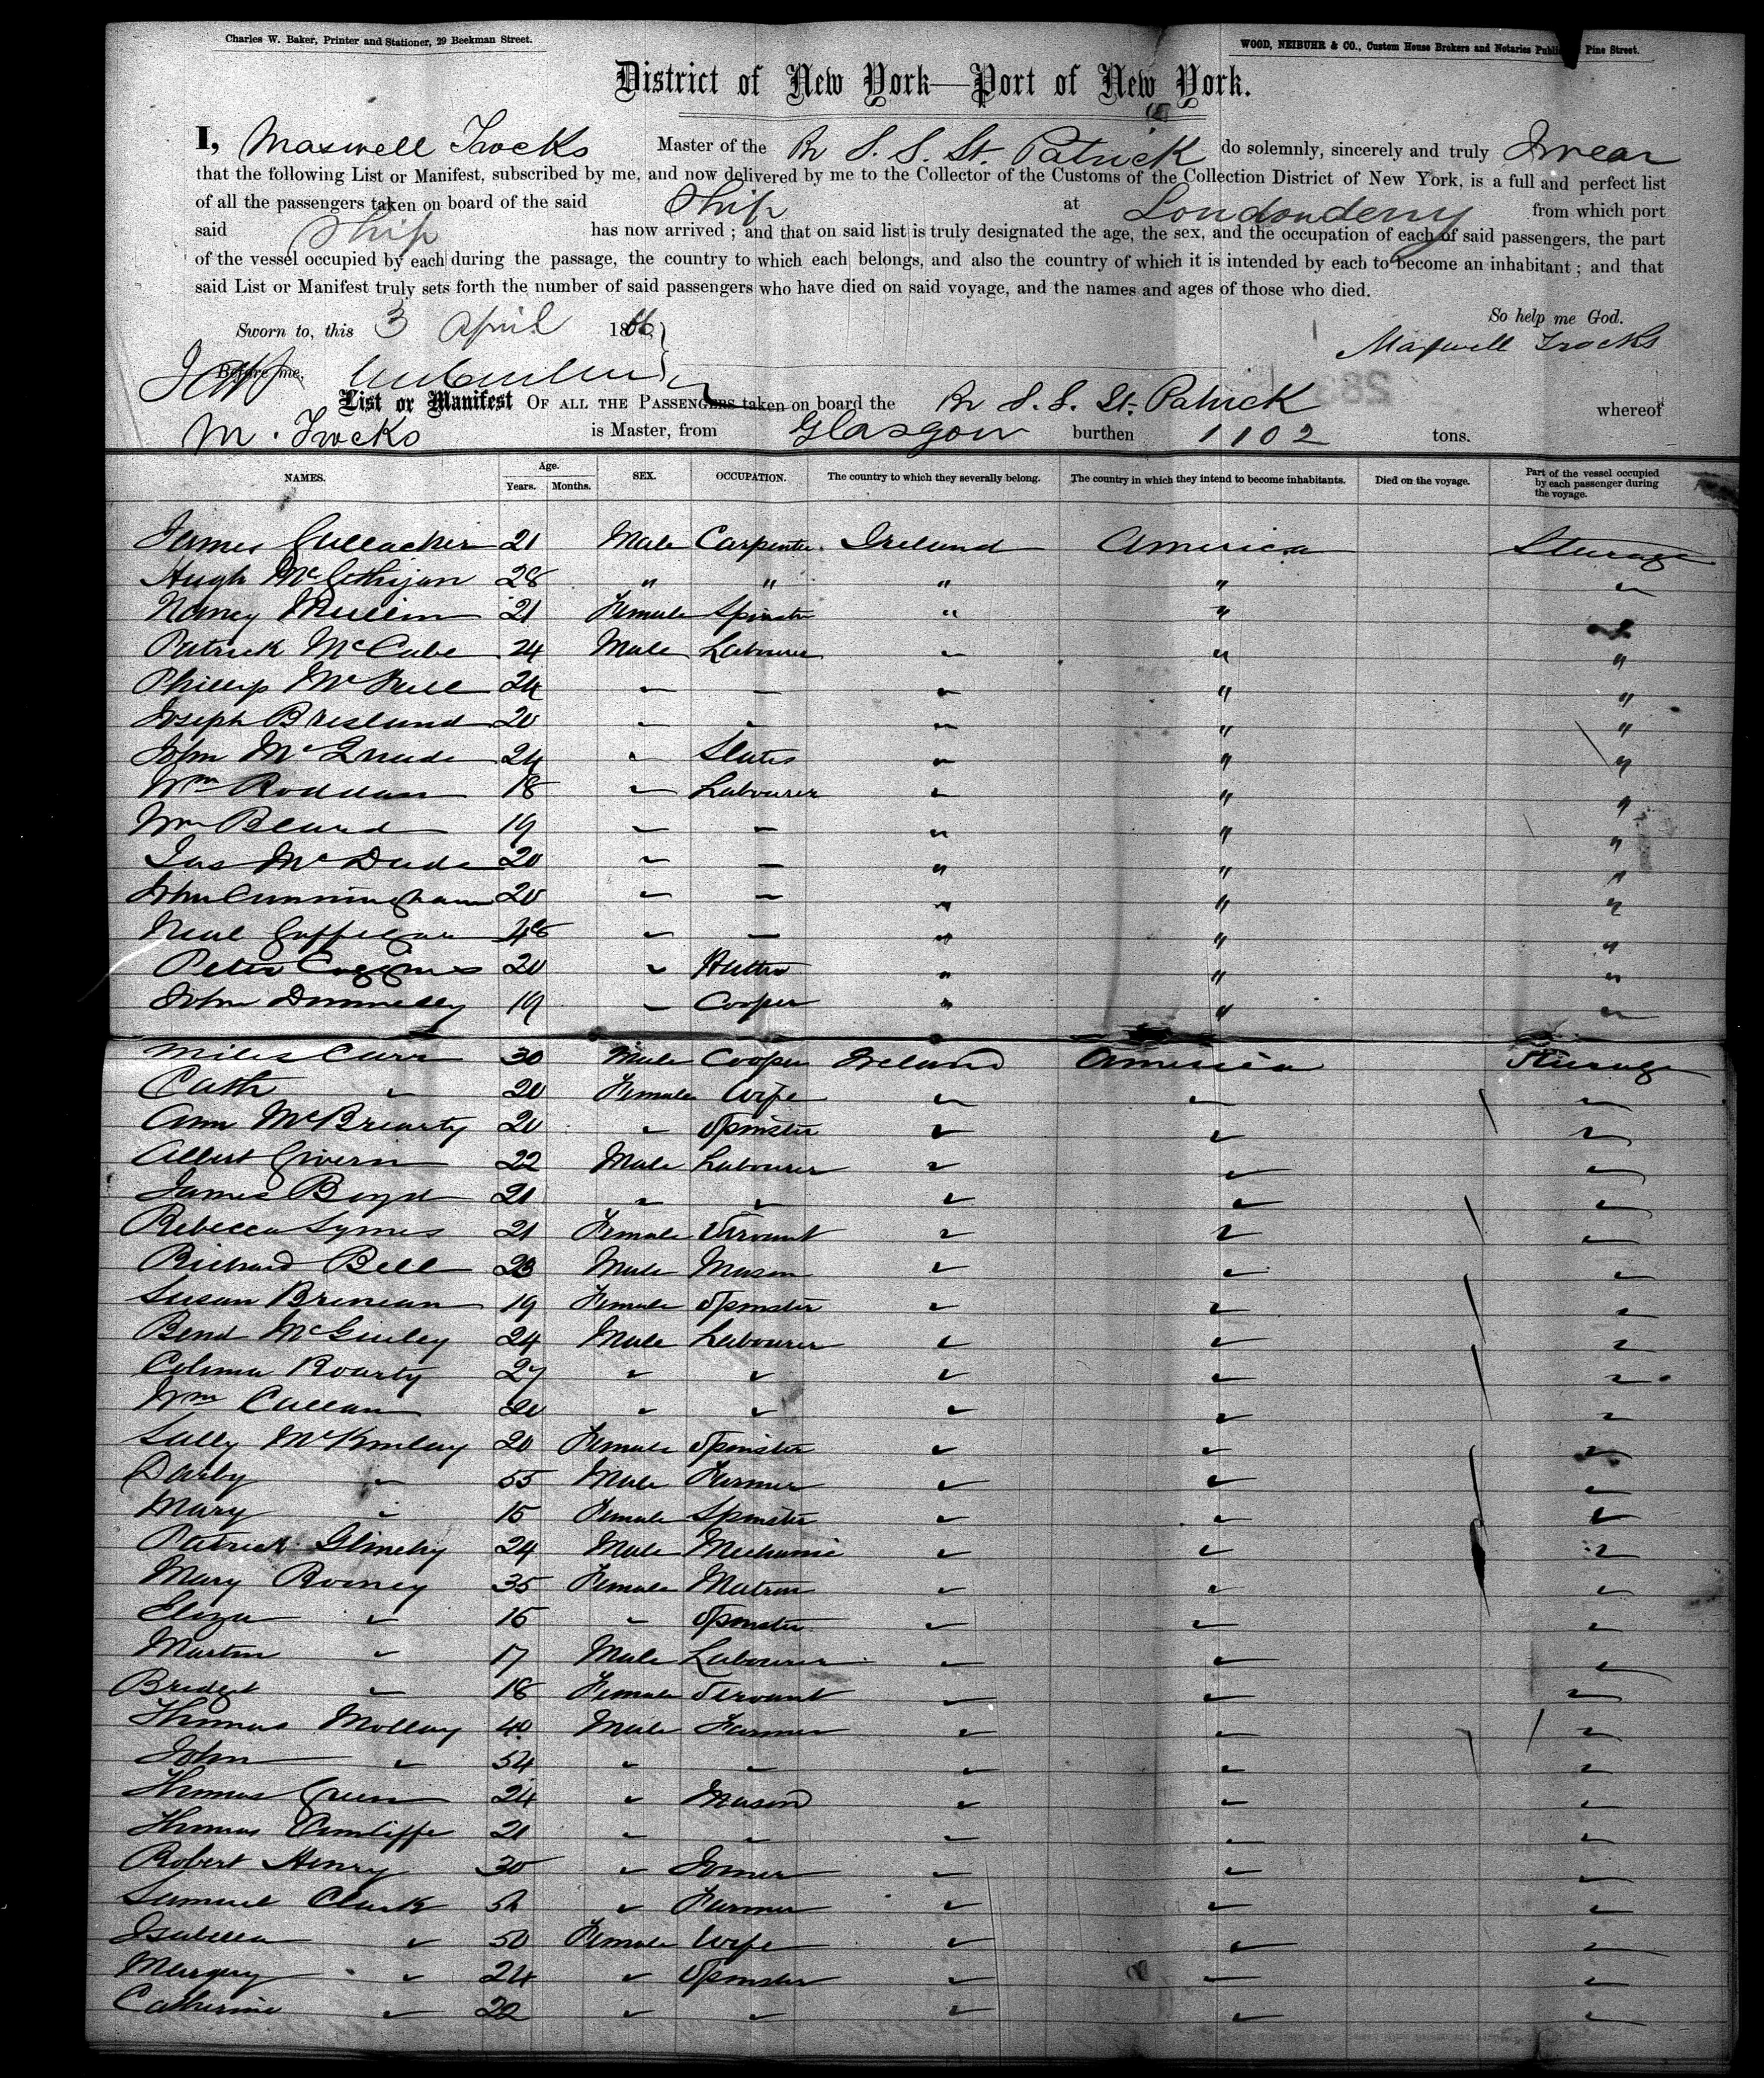 Charles W. Baker, Printer and Stationer, 29 Beekman Street.
WOOD, NEIBUHR & CO., Custom House Brokers and Notaries Public, Pine Street.
District of New York—Port of New York.
I, Maxwell Master of the Br S. S. St. Patrick do solemnly, sincerely and truly Swear
that the following List or Manifest, subscribed by me, and now delivered by me to the Collector of the Customs of the Collection District of New York, is a full and perfect list
of all the passengers taken on board of the said Ship at Londonderry from which port
said Ship has now arrived ; and that on said list is truly designated the age, the sex, and the occupation of each of said passengers, the part
of the vessel occupied by each during the passage, the country to which each belongs, and also the country of which it is intended by each to become an inhabitant ; and that
said List or Manifest truly sets forth the number of said passengers who have died on said voyage, and the names and ages of those who died.
So help me God.
Sworn to, this 3 April 1866
Maxwell
Before me,
List or Manifest OF ALL THE PASSENGERS taken on board the Br S. S. St. Patrick whereof
M. is Master, from Glasgow burthen 1102 tons.
NAMES. Age. Years. Months. SEX. OCCUPATION. The country to which they severally belong. The country in which they intend to become inhabitants. Died on the voyage. Part of the vessel occupied by each passenger during the voyage.
James Gallacher 21 Male Carpenter Ireland America Steerage
Hugh 28 " " " " "
Nancy Mullin 21 Female Spinster " " "
Patrick McCabe 24 Male Labourer " " "
Phillip 24 " " " " "
Joseph Bresland 20 " " " " "
John 24 " Slater " " "
Wm Roddan 18 " Labourer " " "
Wm Beard 19 " " " " "
Jas McDade 20 " " " " "
John Cunningham 20 " " " " "
Neal 48 " " " " "
Peter 20 " Hatter " " "
John Donnelly 19 " Cooper " " "
Miles Carr 30 Male Cooper Ireland America Steerage
Cath " 20 Female Wife " " "
Ann McBriarty 20 " Spinster " " "
Albert Givern 22 Male Labourer " " "
James Boyd 21 " " " " "
Rebecca Symes 21 Female Servant " " "
Richard Bell 23 Male Mason " " "
Susan Brenan 19 Female Spinster " " "
Bend McGinley 24 Male Labourer " " "
Colman Roarty 27 " " " " "
Wm Cullan 20 " " " " "
Sally McKinlay 20 Female Spinster " " "
Darby " 55 Male Farmer " " "
Mary " 15 Female Spinster " " "
Patrick 24 Male Mechanic " " "
Mary Rooney 35 Female Matron " " "
Eliza " 16 " Spinster " " "
Martin " 17 Male Labourer " " "
Bridget " 18 Female Servant " " "
Thomas Mollay 40 Male Farmer " " "
John " 54 " " " " "
Thomas Green 24 " Mason " " "
Thomas Cunliffe 21 " " " " "
Robert Henry 30 " Joiner " " "
Samuel Clark " Farmer " " "
Isabella " 50 Female Wife " " "
Margery " 24 " Spinster " " "
Catherine " 22 " " " " "